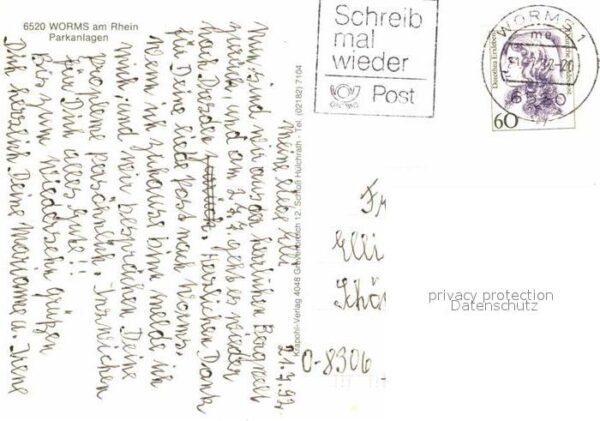 6520 WORMS am Rhein
Parkanlagen
21.7.92
Meine liebe Elli
Nun sind wir aus der herrlichen Bergwelt
zurück und am 27.7 geht es wieder
nach Dresden. Herzlichen Dank
für Deine liebe Post nach Worms.
Wenn ich zuhause bin melde ich
mich. und wir besprechen Deine
Probleme persönlich. Inzwischen
für Dich alles Gute!!
Bis zum Wiedersehn grüßen
Dich herzlich Deine Marianne u. Irene
Krapohl-Verlag 4048 Grevenbroich 12, Schloß Hülchrath - Tel. (02182) 7104
Schreib
mal
wieder
Post
WORMS 1
6520
Deutsche Bundespost
60
Fr
Elli
Schö
O-8306
privacy protection
Datenschutz